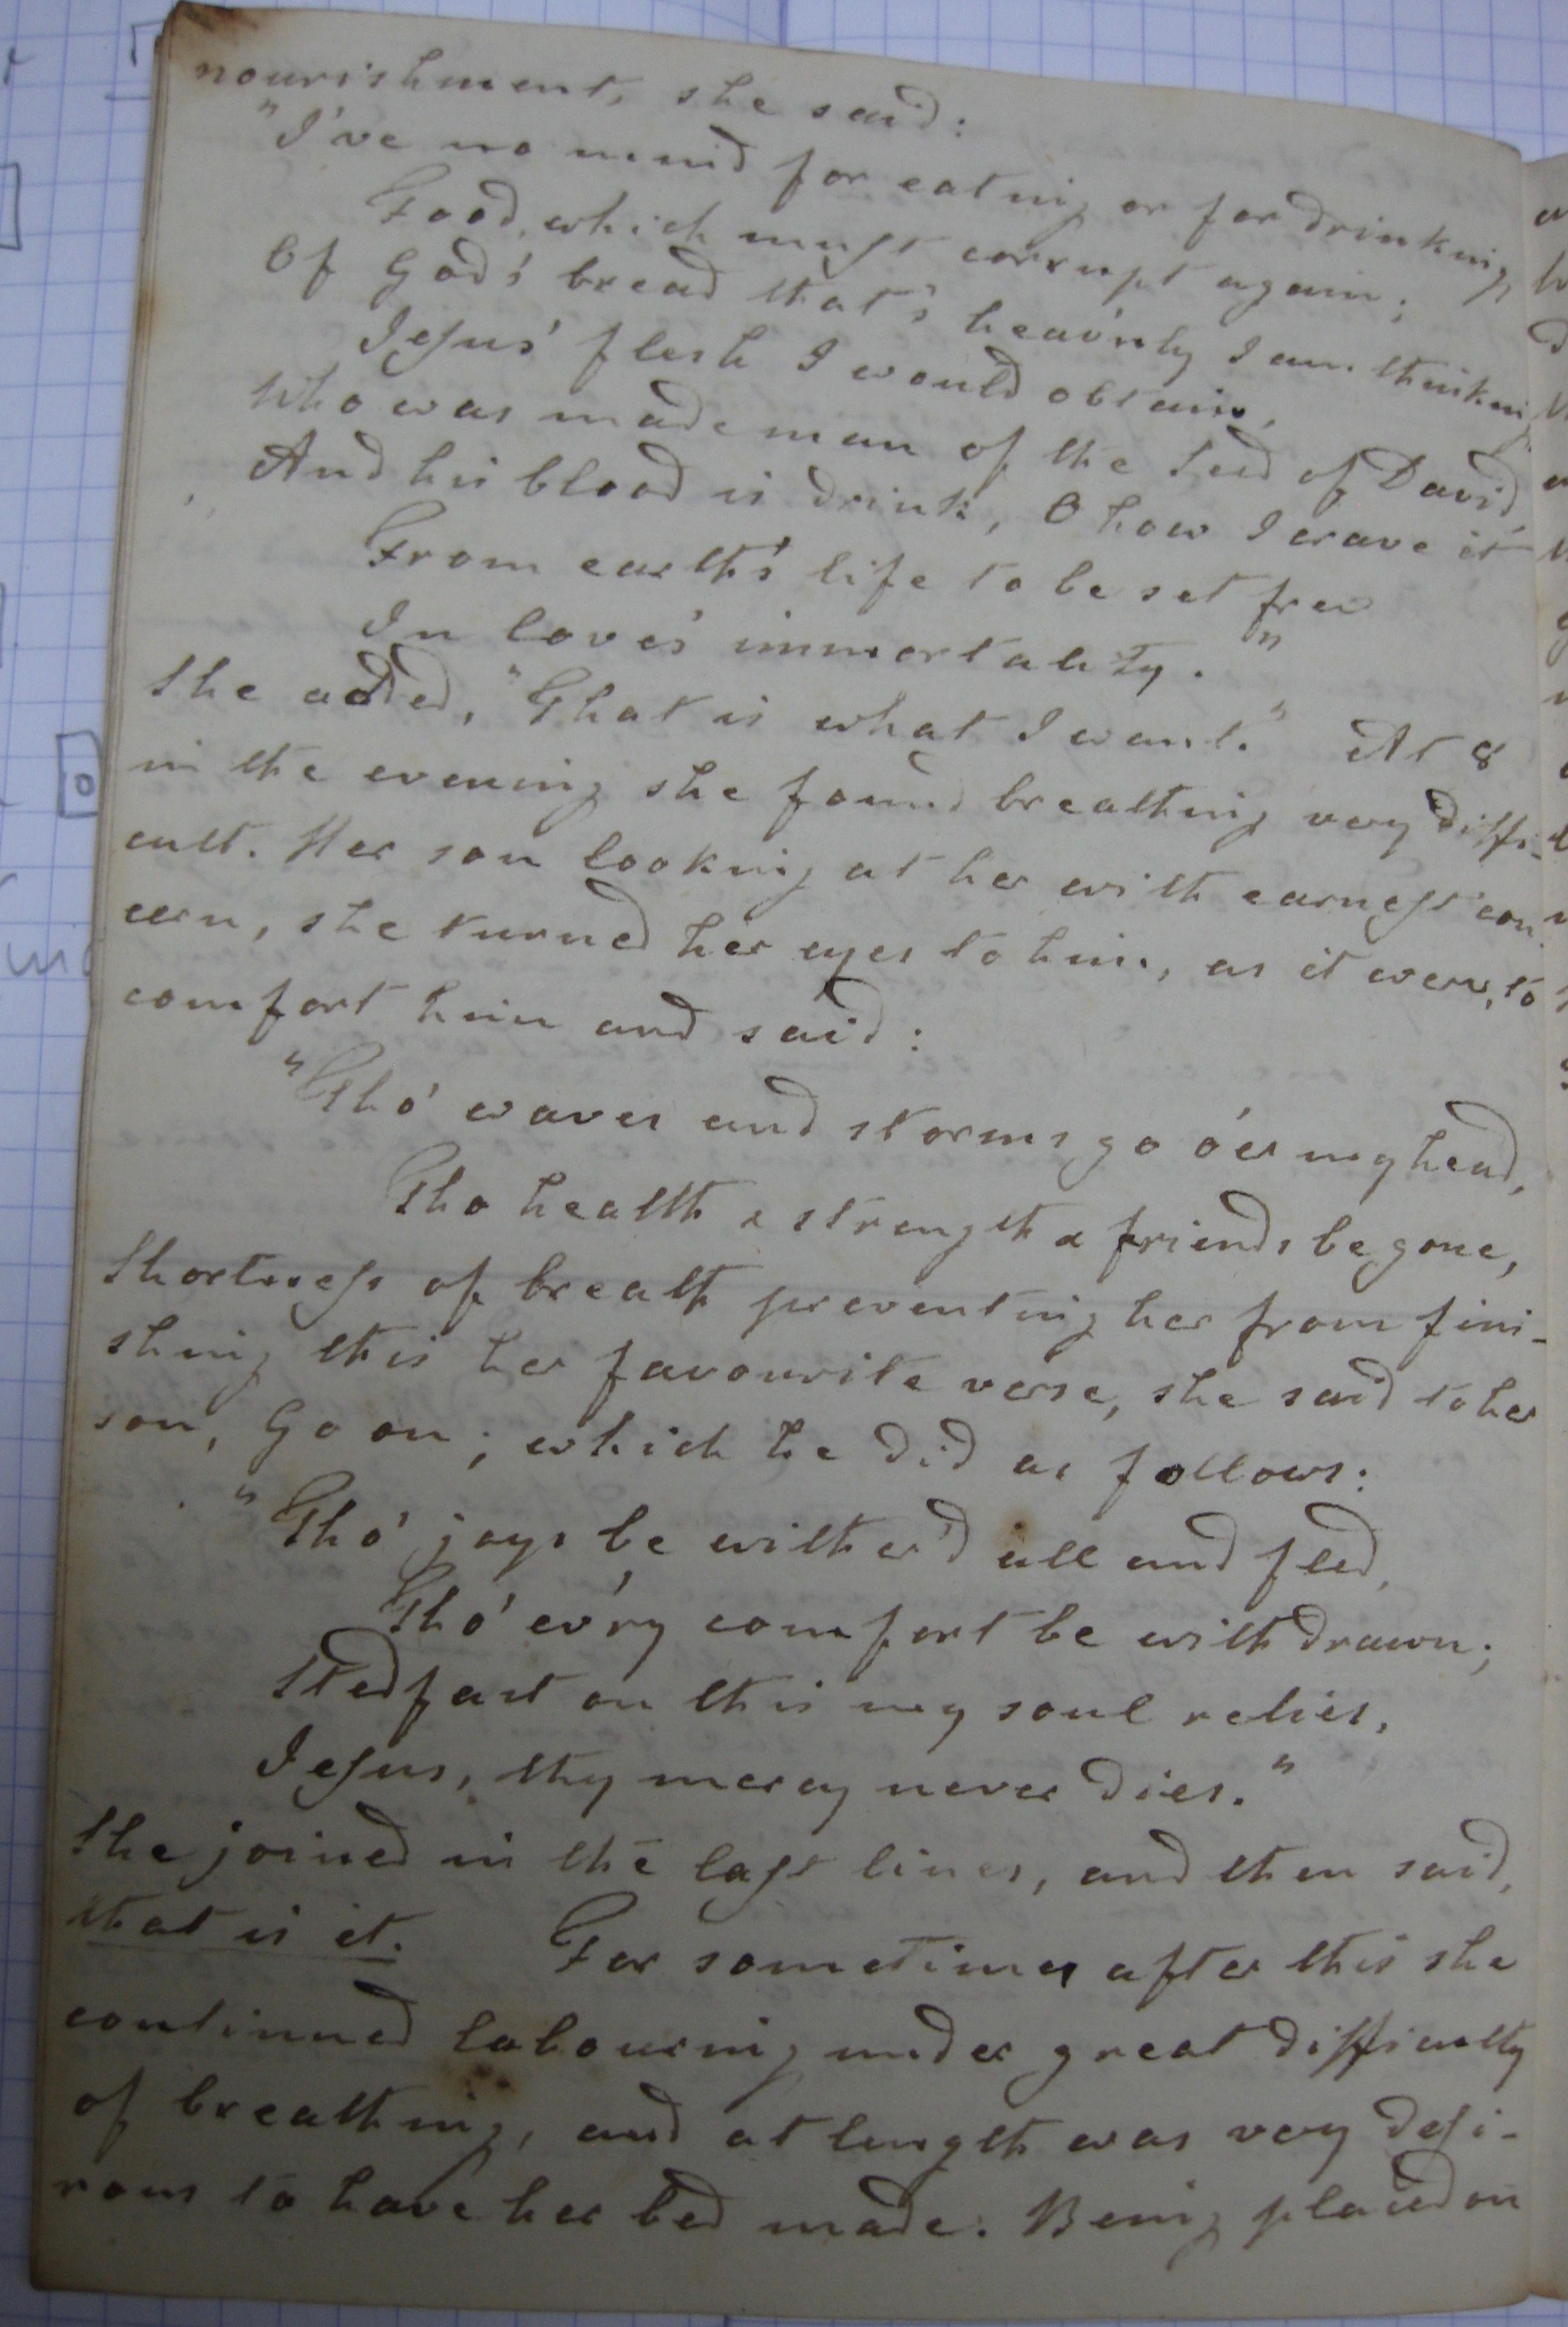 nourishment, she said:
"I've no mind for eating or for drinking
Food, which must corrupt again;
Of God's bread that's heav'nly I am thinking,
Jesus' flesh I would obtain,
Who was made man of the Seed of David,
And his blood is drink, O how I crave it
From earth's life to be set free
In love's immortality."
She added, "That is what I want." At 8
in the evening she found breathing very diffi-
cult. Her son looking at her with earnest con-
cern, she turned her eyes to him, as it were, to
comfort him and said:
"Tho' waves and storms go o'er my head,
Tho health & strength & friends be gone,
Shortness of breath preventing her from fini-
shing this her favourite verse, she said to her
son, Go on; which he did as follows:
"Tho' joys be wither'd all and fled,
Tho' ev'ry comfort be withdrawn;
Stedfast on this my soul relies,
Jesus, thy mercy never dies."
She joined in the last lines, and then said,
that is it. For sometimes after this she
continued labouring under great difficulty
of breathing, and at length was very desi-
rous to have her bed made. Being placed on